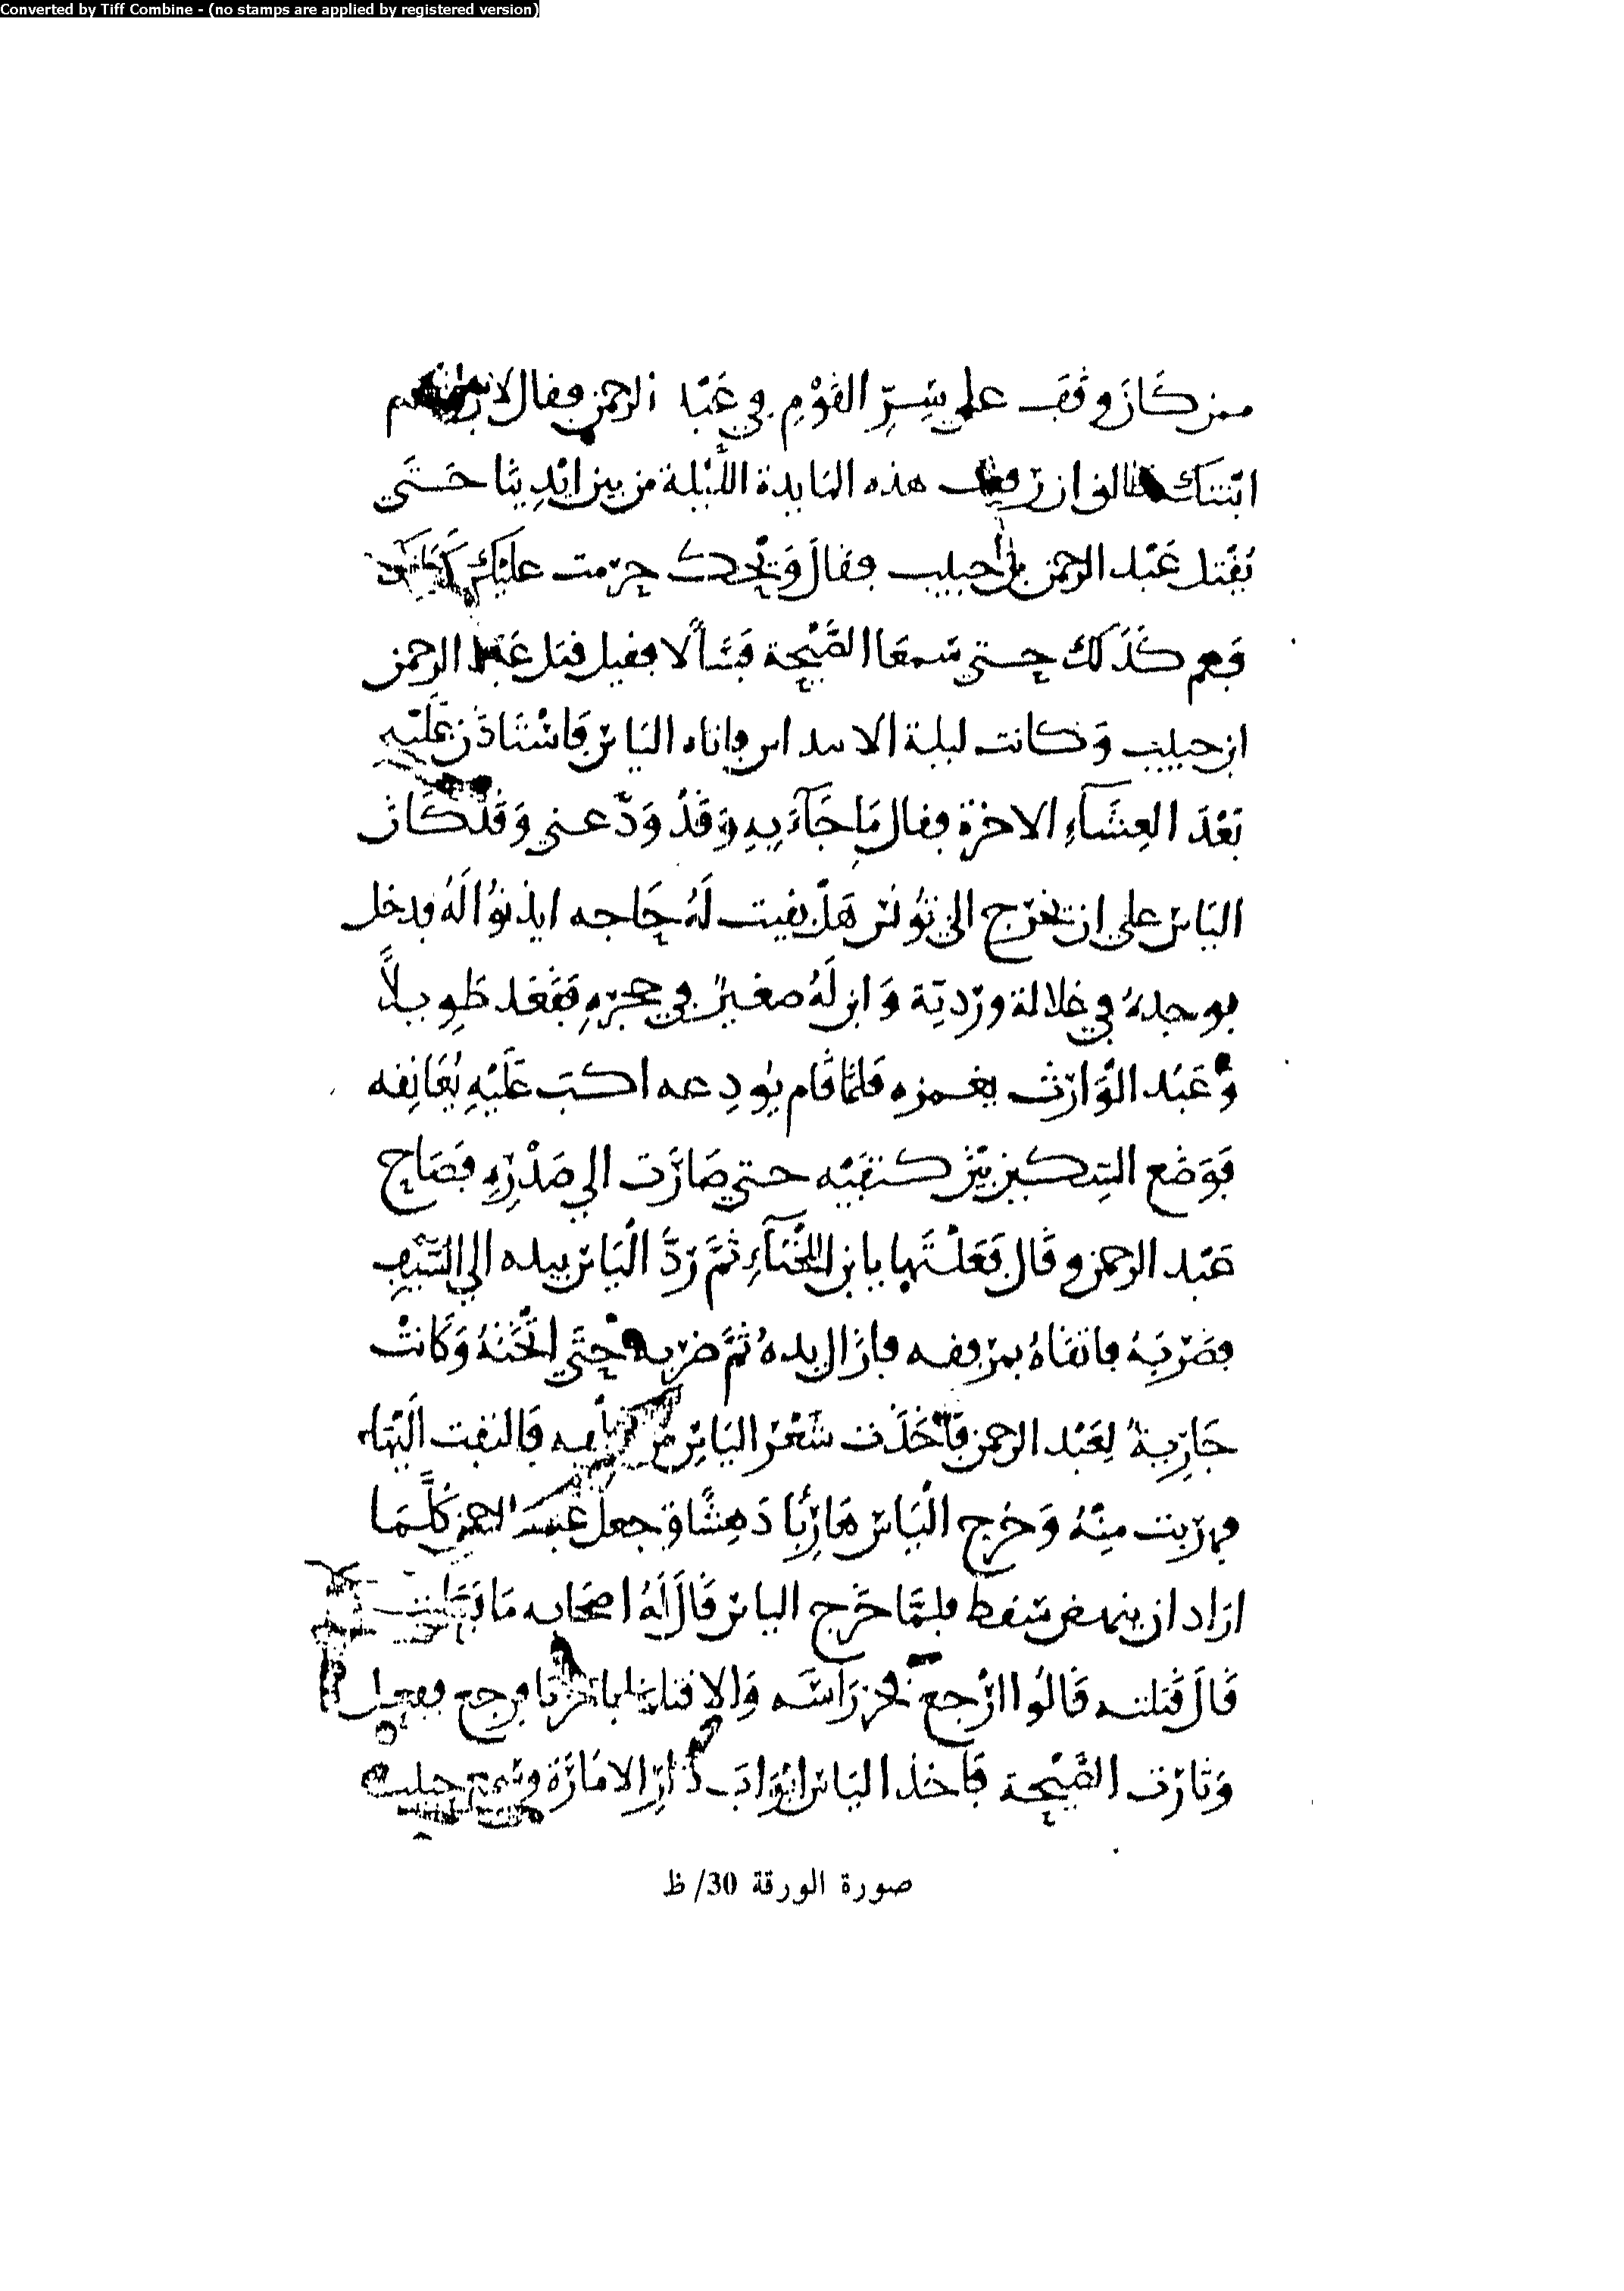 Converted by Tiff Combine - (no stamps are applied by registered version)
ممن كَان وقَف علي سِرِّ القَوْمِ في عَبْد الرحمن فقال
ابنتك طالق ان رفعت هذه المايدة اللَّيْلة من بين ايْدِينَا حَتَّي
نقْتل عَبْد الرحمن بن حبيب فقالَ وَيْحك حرّمت عليْك
فهم كَذَلك حتي سَمعَا الصَّيْحة فَسَأَلا فقيل قتل عَبْد الرحمن
ابن حبيب وَكانت ليلة فاتاه اليَاس فَاسْتَاذَن عَلَيْهِ
بَعْدَ العِشَآءِ الاخرَة فقال مَا جَآءَ بِهِ وَقَدْ وَدّعني وَقَدْ كَان
اليَاس علي ان يخرج الي تُونُس هَلْ بقيت لَهُ حَاجه ايذنُوا لَهُ فدخل
فوجدهُ في غلالة ورْديّة وَابن لَهُ صغيرٌ في حجْرِهِ فَقَعَد طَوِيلاً
وَعَبْد الْوَارث يغمزه فَلمَّا قَام يُودِعه اكبّ عَلَيْهِ يُعَانِقه
فَوَضَع السِّكين بَيْن كتفَيْه حتي صَارَت الي صَدْرِهِ فَصَاح
عَبْد الرحمن وقَال فَعَلْتَهَا يا بن اللَّخْنَآءِ ثُمَّ رَدَّ الْيَاس بيده الي السَّيْفِ
فضَرَبَهُ فاتقَاهُ بمرفقه فابَان يدهُ ثُمَّ ضربه حَتَّي اثْخَنَهُ وَكَانتْ
جَارِيةٌ لِعَبْد الرحمن فَأَخَذَت شَعْرَ اليَاس من خلفه فَالتفت الَيْهَا
فهرَبت مِنْهُ وَخَرَج الْيَاس هَارِبًا دَهِشًا وَجعل عَبْد الرحمن كُلَّمَا
ارَاد ان ينهض سَقط فلمَّا خَرَج الياس قَالَ لَهُ اصحَابه مَا فَعَلت
قَالَ قَتلته قَالُوا ارْجع فحز رَاسَه وَالا قتلنا فرجع ففعل
وَثارَت الصَّيْحة فَاخذ اليَاس ابْوَابَ دَارِ الامَارَة وسمع حبيب
صورة الورقة 30/ظ